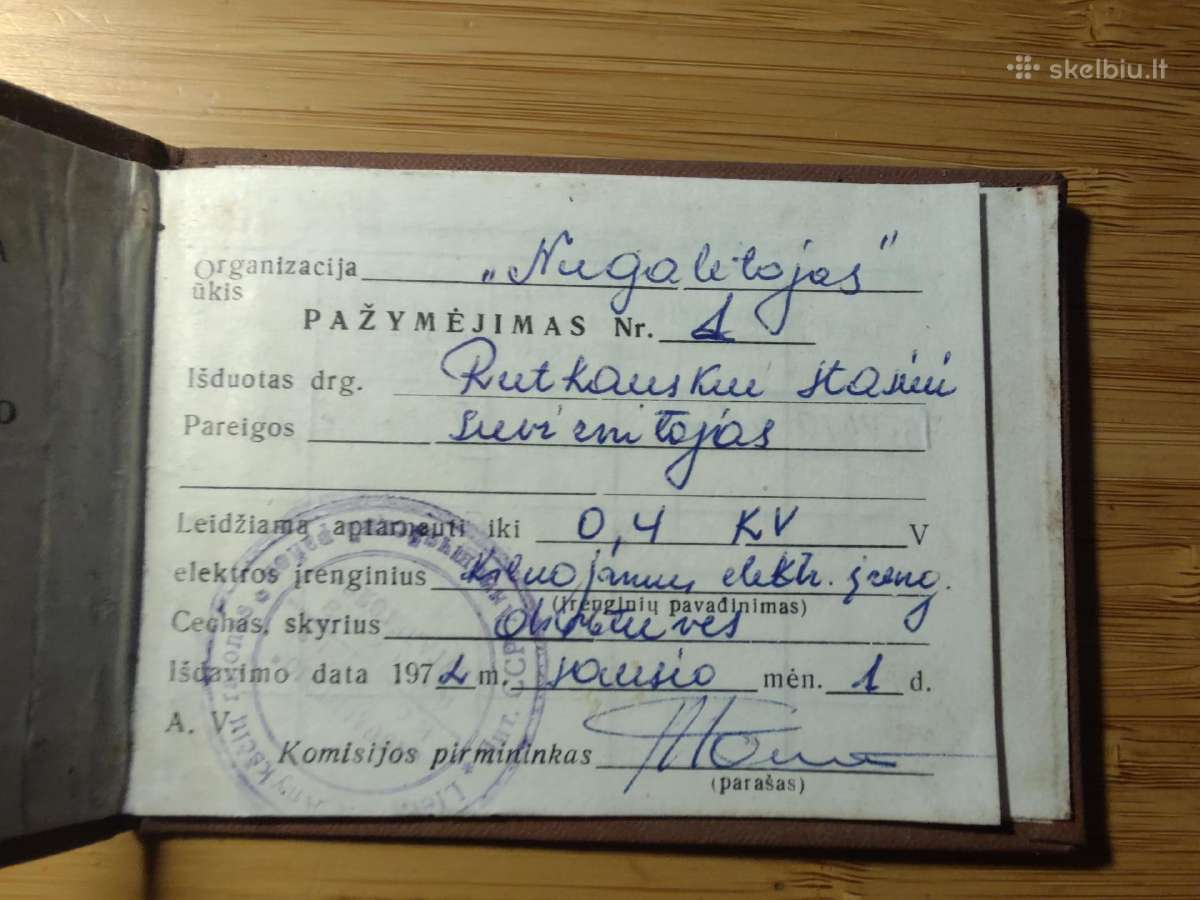 skelbiu.lt
Organizacija „Nugalėtojas"
ūkis
PAŽYMĖJIMAS Nr. 1
Išduotas drg. Rutkauskui Stasiui
Pareigos Suvirintojas
Leidžiama aptarnauti iki 0,4 KV V
elektros įrenginius kilnojamų elektr. įreng.
(įrenginių pavadinimas)
Cechas, skyrius
Išdavimo data 1972 m. sausio mėn. 1 d.
A. V.
Komisijos pirmininkas
(parašas)